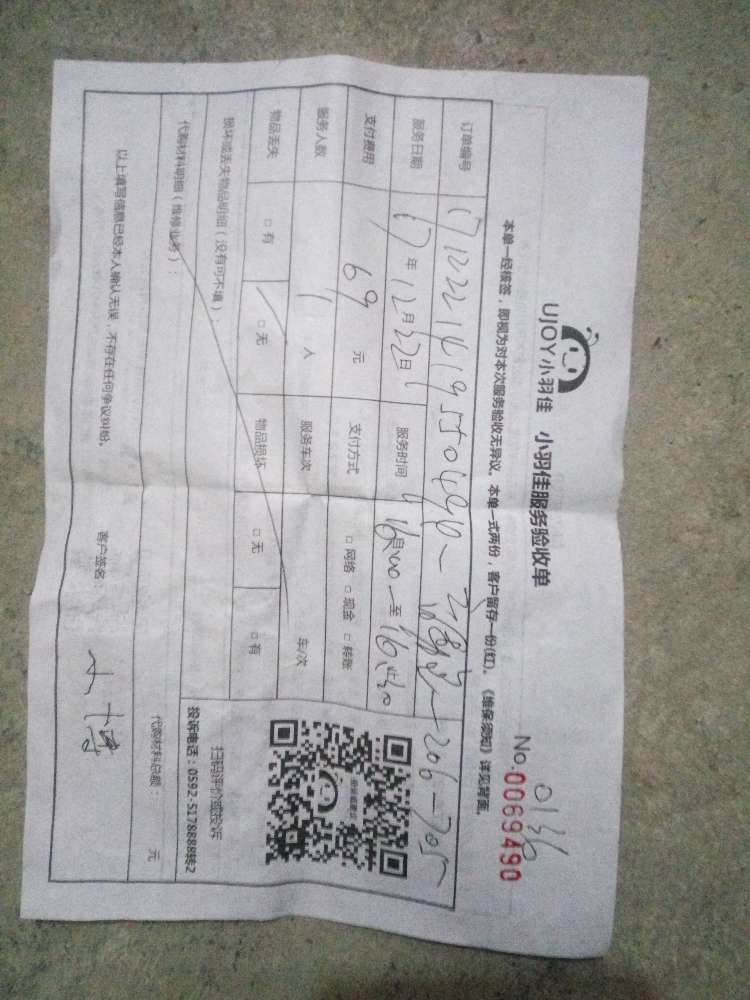 0136
UJOY小羽佳 小羽佳服务验收单 No.0069490
本单一经核签，即视为对本次服务验收无异议。本单一式两份，客户留存一份(红)。《维保须知》详见背面。
订单编号 206-705
服务日期 17年12月22日 服务时间 16:00-至16:30
支付费用 69元 支付方式 □网络 □现金 □转账
服务人数 1人 服务车次 车/次
物品丢失 □有 □无 物品损坏 □无 □有
损坏或丢失物品明细（没有可不填）：
代购材料明细（维修业务）：
代购材料总额： 元
以上填写信息已经本人确认无误，不存在任何争议纠纷。 客户签名：
扫码评价或投诉
投诉电话：0592-5178888转2